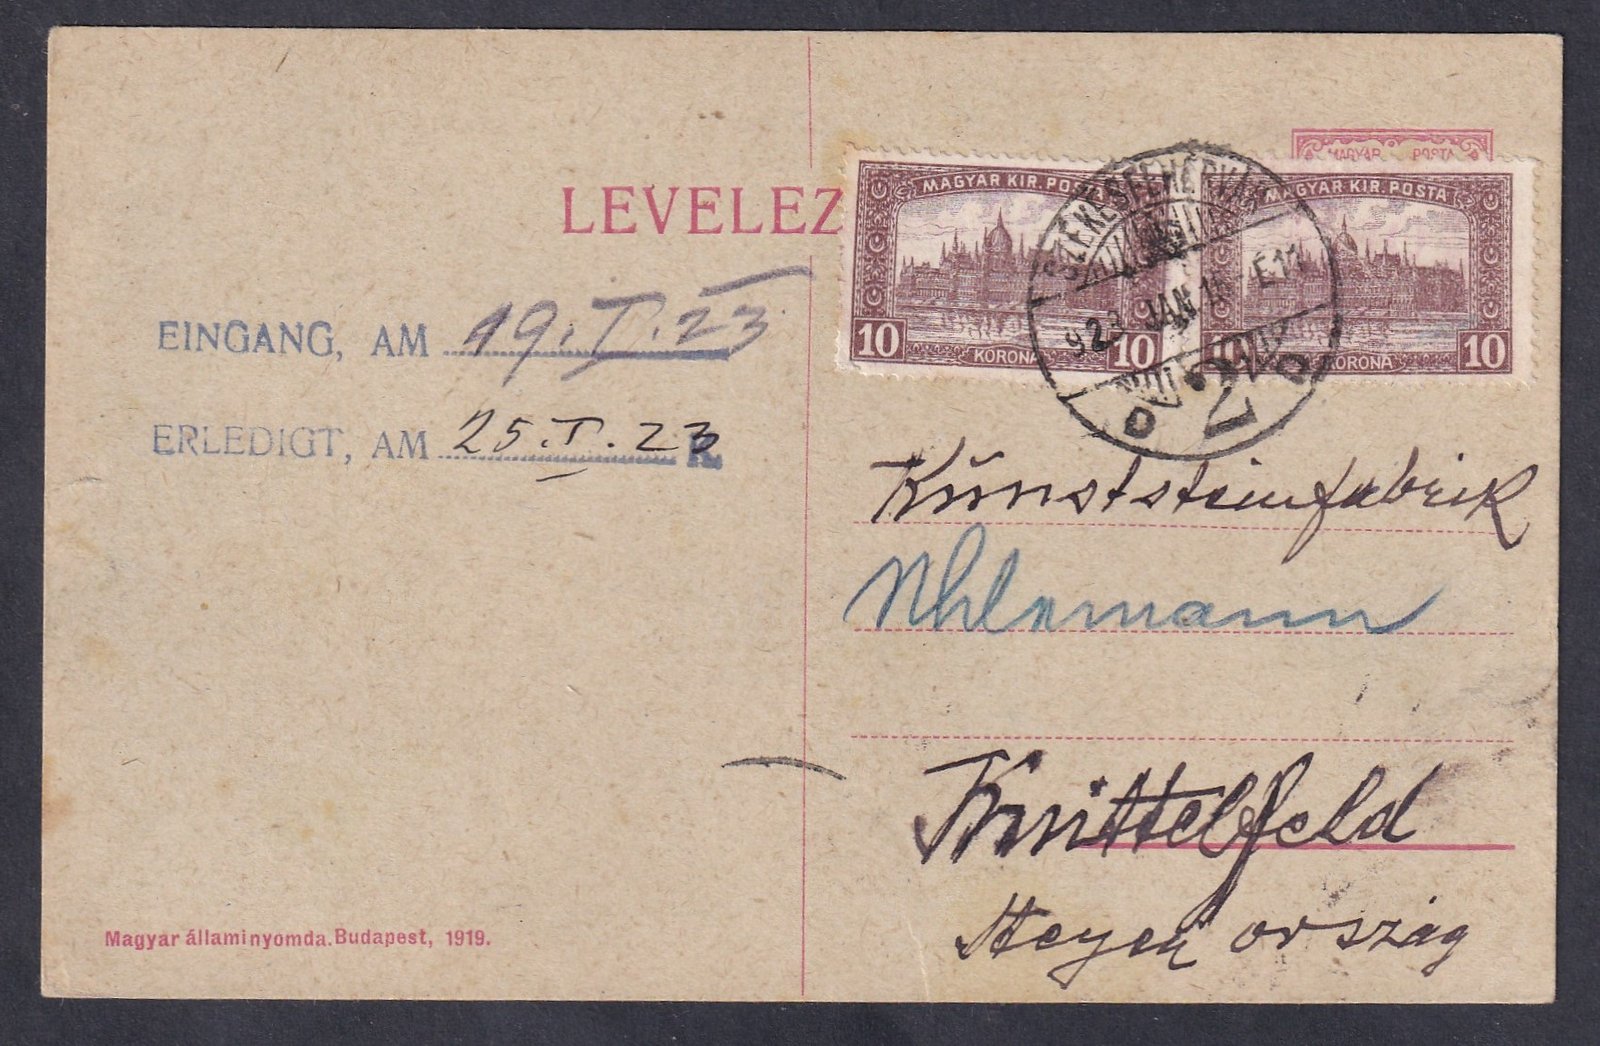 MAGYAR POSTA
LEVELEZ
MAGYAR KIR. POSTA
10 KORONA 10
MAGYAR KIR. POSTA
KORONA 10
SZÉKESFEHÉRVÁR
923 JAN
EINGANG, AM 19.I.23
ERLEDIGT, AM 25.I.23
Kŭnststeinfabrik
Uhlemann
Knittelfeld
ország
Magyar állami nyomda. Budapest, 1919.